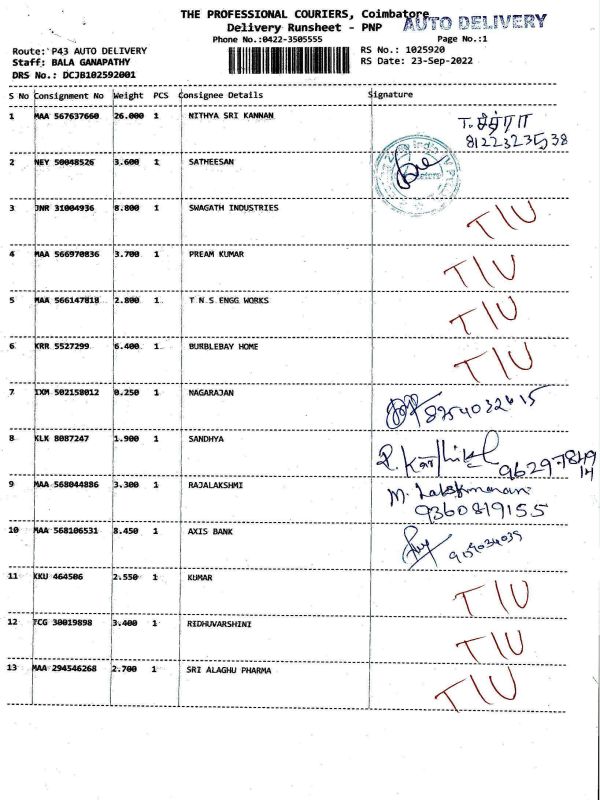 THE PROFESSIONAL COURIERS, Coimbatore
AUTO DELIVERY
Delivery Runsheet - PNP
Phone No.:0422-3505555
Page No.:1
Route: P43 AUTO DELIVERY
RS No.: 1025920
Staff: BALA GANAPATHY
RS Date: 23-Sep-2022
DRS No.: DCJB102592001
S No Consignment No Weight PCS Consignee Details Signature
1 MAA 567637660 26.000 1 NITHYA SRI KANNAN
T. சித்ரா
8122323538
2 NEY 50048526 3.600 1 SATHEESAN
3 JNR 31004936 8.800 1 SWAGATH INDUSTRIES T/U
4 MAA 566970836 3.700 1 PREAM KUMAR T/U
5 MAA 566147818 2.800 1 T N S ENGG WORKS T/U
6 KRR 5527299 6.400 1 BURBLEBAY HOME T/U
7 IXM 502158012 0.250 1 NAGARAJAN
8 KLK 8087247 1.900 1 SANDHYA
R. Karthik
9 MAA 568044886 3.300 1 RAJALAKSHMI
M. Lakshmanan
9360819155
10 MAA 568106531 8.450 1 AXIS BANK
11 KKU 464506 2.550 1 KUMAR T/U
12 TCG 30019898 3.400 1 RIDHUVARSHINI T/U
13 MAA 294546268 2.700 1 SRI ALAGHU PHARMA T/U